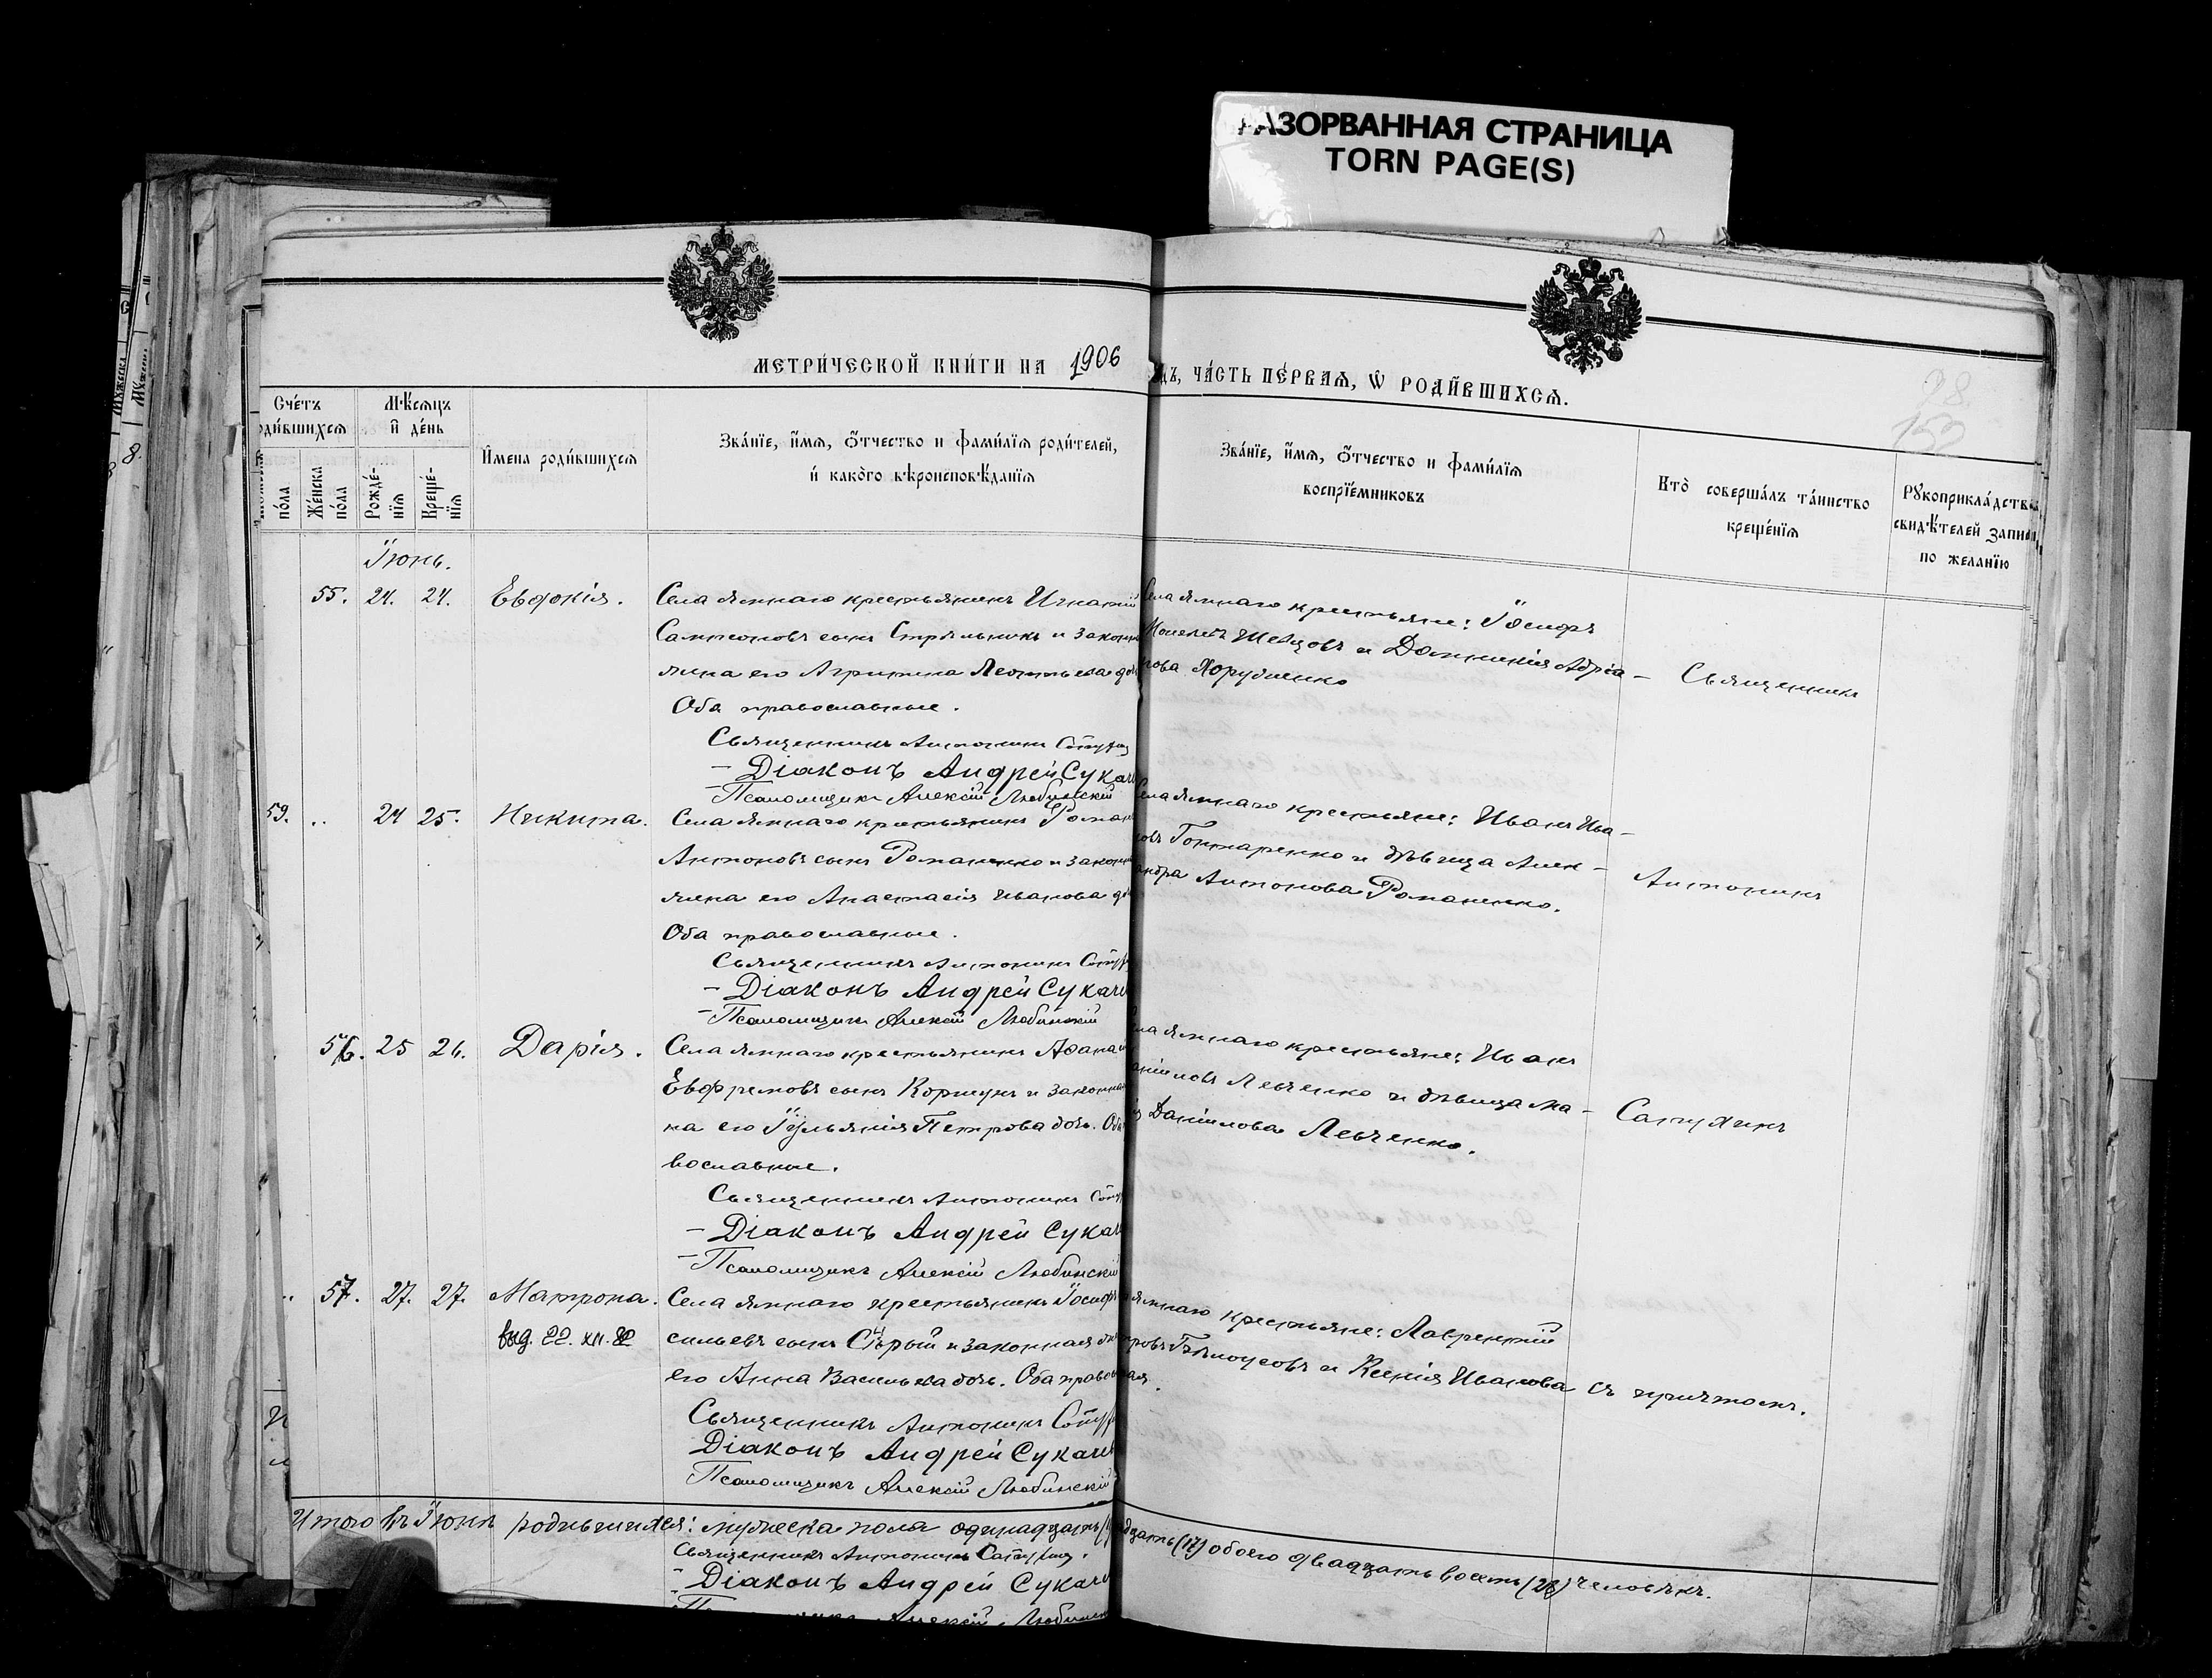 РАЗОРВАННАЯ СТРАНИЦА
TORN PAGE(S)
МЕТРИ́ЧЕСКОЙ КНИ́ГИ НА 1906
ДЪ, ЧА́СТЬ ПЕ́РВАѦ, Ѡ҆ РОДИ́ВШИХСѦ.
Сче́тъ
оди́вшихсѧ
Мѣ́сѧцъ
и҆ де́нь
И҆мена роди́вшихсѧ
Зва́нїе, и҆́мѧ, ѻ҆́тчество и фами́лїѧ роди́телей,
и҆ како́го вѣроисповѣ́данїѧ
Зва́нїе, и҆́мѧ, ѻ҆́тчество и фами́лїѧ
воспрїе́мниковъ
Кто̀ соверша́лъ та́инство
креще́нїѧ
Рꙋкоприкла́дство
свидѣ́телей записи
по жела́нїю
по́ла
Же́нска
по́ла
Рожде́-
нїѧ
Креще́-
нїѧ
98.
Іюнь.
55. 24. 24. Евдокія.
Села Ямнаго крестьянинъ Игнатій
Сампсоновъ сынъ Стрѣльникъ и законн
жена его Агрипина Леонтьева доч
Оба православные.
Священникъ Антонинъ
– Діаконъ Андрей Сукач
– Псаломщикъ Алексій Любинскій
Села Ямнаго крестьяне: Іосифъ
Шевцовъ и Домникія Адріа–
нова Хорушенко
Священникъ
59. .. 24 25. Никита.
Села Ямнаго крестьянинъ Роман
Антоновъ сынъ Романенко и законн
жена его Анастасія Иванова до
Оба православные.
Священникъ Антонинъ
– Діаконъ Андрей Сукач
– Псаломщикъ Алексій Любинскій
Села Ямнаго крестьяне: Иванъ Ива–
новъ Гончаренко и дѣвица Алек–
сандра Антонова Романенко.
Антонинъ
56. 25 26. Дарія.
Села Ямнаго крестьянинъ Афана
Евфремовъ сынъ Коршунъ и законная
на его Іульянія Петрова дочь. Оба
вославные.
Священникъ Антонинъ
– Діаконъ Андрей Сукач
– Псаломщикъ Алексій Любинскій
ела Ямнаго крестьяне: Иванъ
аніиловъ Левченко и дѣвица Ма–
Даніилова Левченко.
Сапухинъ
57. 27. 27. Матрона.
выд. 22. XII.
Села Ямнаго крестьянинъ Іосифъ
сильевъ сынъ Сѣрый и законная
его Анна Васильева дочь. Оба правос
Священникъ Антонинъ
Діаконъ Андрей Сукач
Псаломщикъ Алексій Любинскій
Ямнаго крестьяне: Лаврентій
ровъ Бѣлоусовъ и Ксенія Иванова
съ причтомъ.
Итого въ Іюнѣ родившихся: мужеска пола одинадцать
дцать (17) обоего двадцать восемь (28) человѣкъ.
Священникъ Антонинъ
– Діаконъ Андрей Сукач
Алексій Любинск